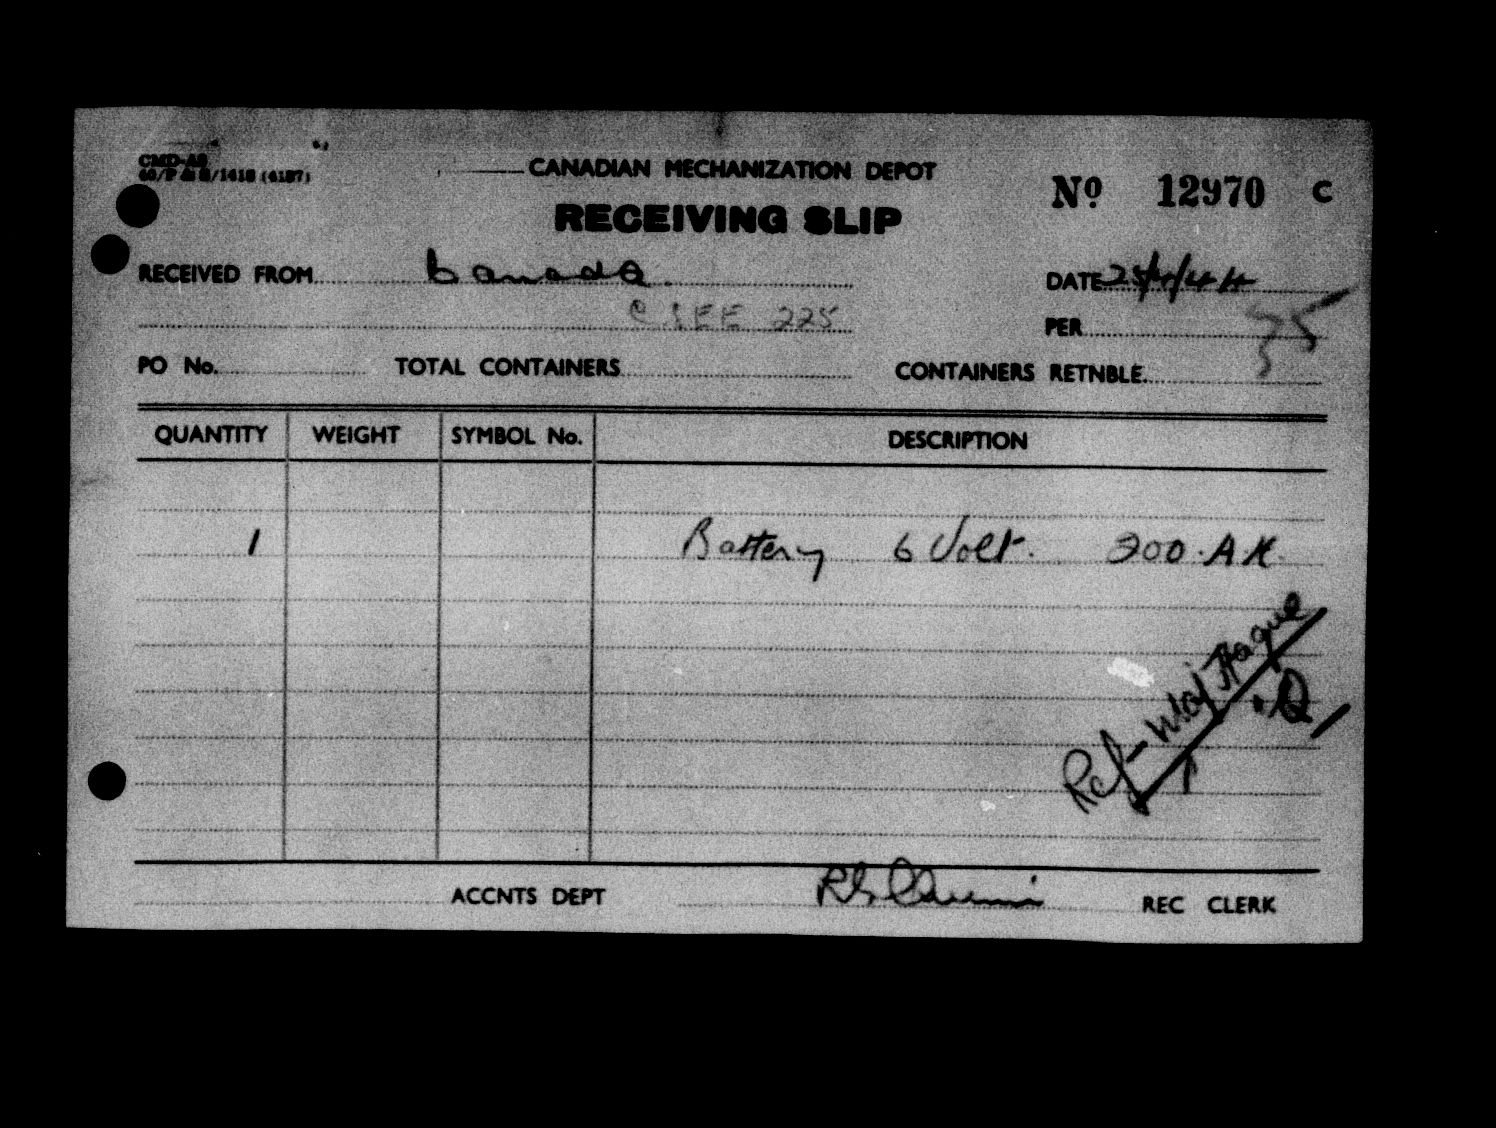 CMD-A8
CANADIAN MECHANIZATION DEPOT
Nº 12970 C
RECEIVING SLIP
RECEIVED FROM Canada.
DATE 25/4/44
C SEE 225
PER
PO No. TOTAL CONTAINERS CONTAINERS RETNBLE.
QUANTITY WEIGHT SYMBOL No. DESCRIPTION
1 Battery 6 Volt. 200 A.H.
Ref- Maj Hague
ACCNTS DEPT REC CLERK